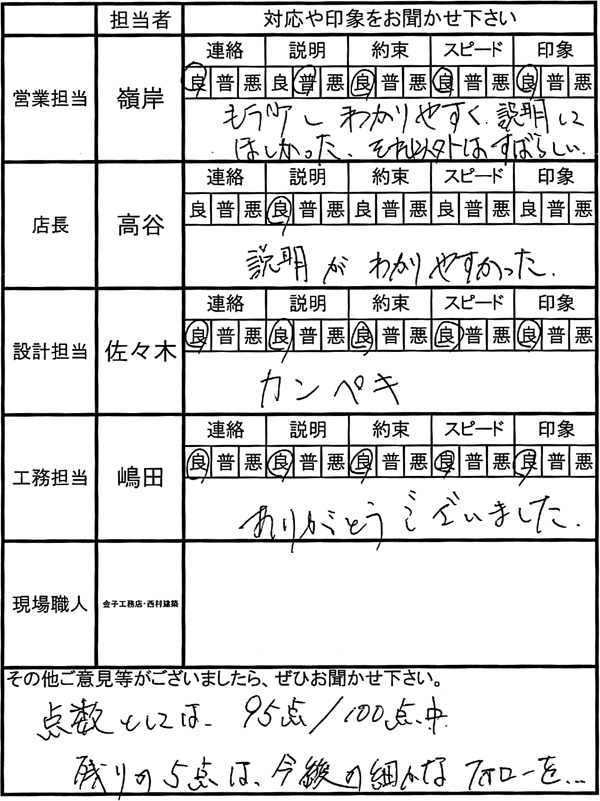 担当者 対応や印象をお聞かせ下さい
営業担当 嶺岸
連絡 説明 約束 スピード 印象
良 普 悪 良 普 悪 良 普 悪 良 普 悪 良 普 悪
もう少しわかりやすく説明して
ほしかった。それ以外はすばらしい。
店長 高谷
連絡 説明 約束 スピード 印象
良 普 悪 良 普 悪 良 普 悪 良 普 悪 良 普 悪
説明がわかりやすかった。
設計担当 佐々木
連絡 説明 約束 スピード 印象
良 普 悪 良 普 悪 良 普 悪 良 普 悪 良 普 悪
カンペキ
工務担当 嶋田
連絡 説明 約束 スピード 印象
良 普 悪 良 普 悪 良 普 悪 良 普 悪 良 普 悪
ありがとうございました。
現場職人 金子工務店・西村建築
その他ご意見等がございましたら、ぜひお聞かせ下さい。
点数としては、95点/100点中
残りの5点は、今後の細かなフォローを...